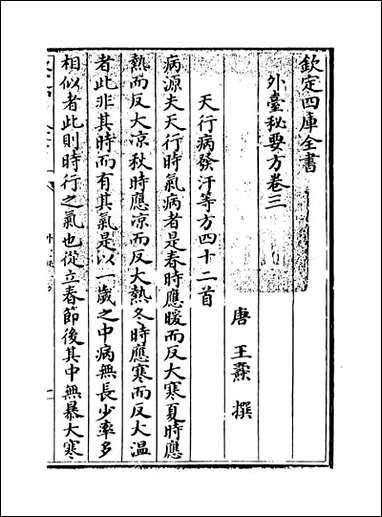 欽定四庫全書
外臺秘要方卷三
唐 王燾 撰
天行病發汗等方四十二首
病源夫天行時氣病者是春時應暖而反大寒夏時應
熱而反大凉秋時應凉而反大熱冬時應寒而反大温
者此非其時而有其氣是以一歲之中病無長少率多
相似者此則時行之氣也從立春節後其中無暴大寒